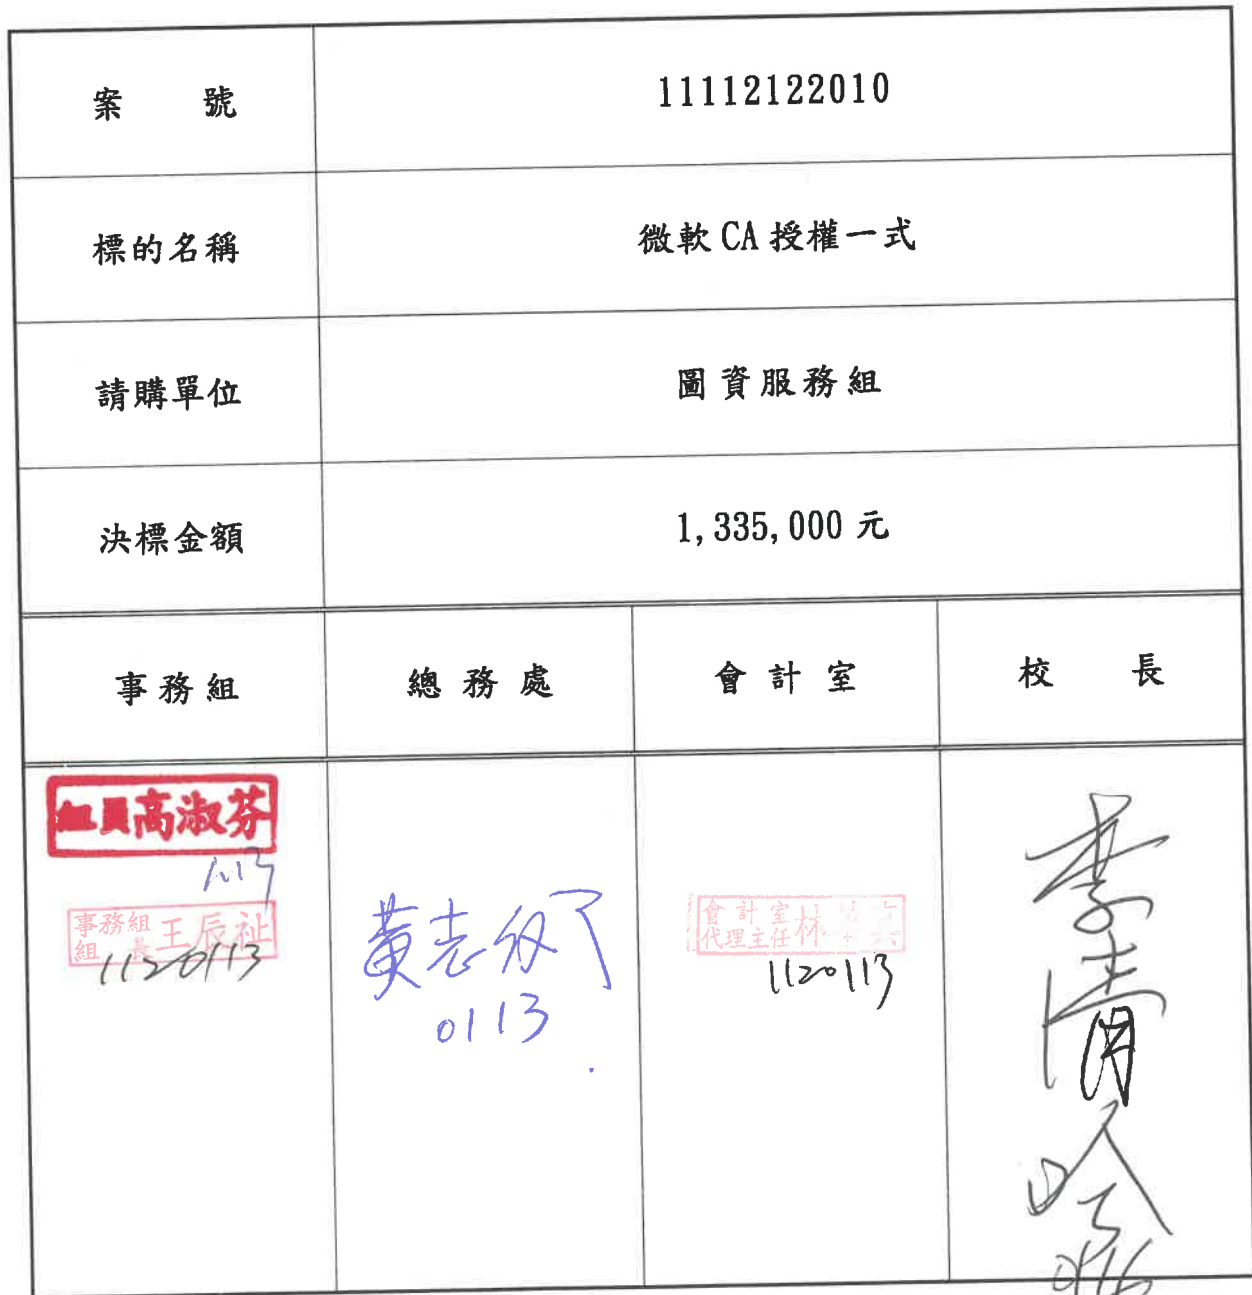 案 號 11112122010
標的名稱 微軟CA授權一式
請購單位 圖資服務組
決標金額 1,335,000元
事務組 總務處 會計室 校長
組員高淑芬
1.13
事務組
組長 王辰祉
1120113
黃志
0113
會計室
代理主任 林
1120113
李清
0116